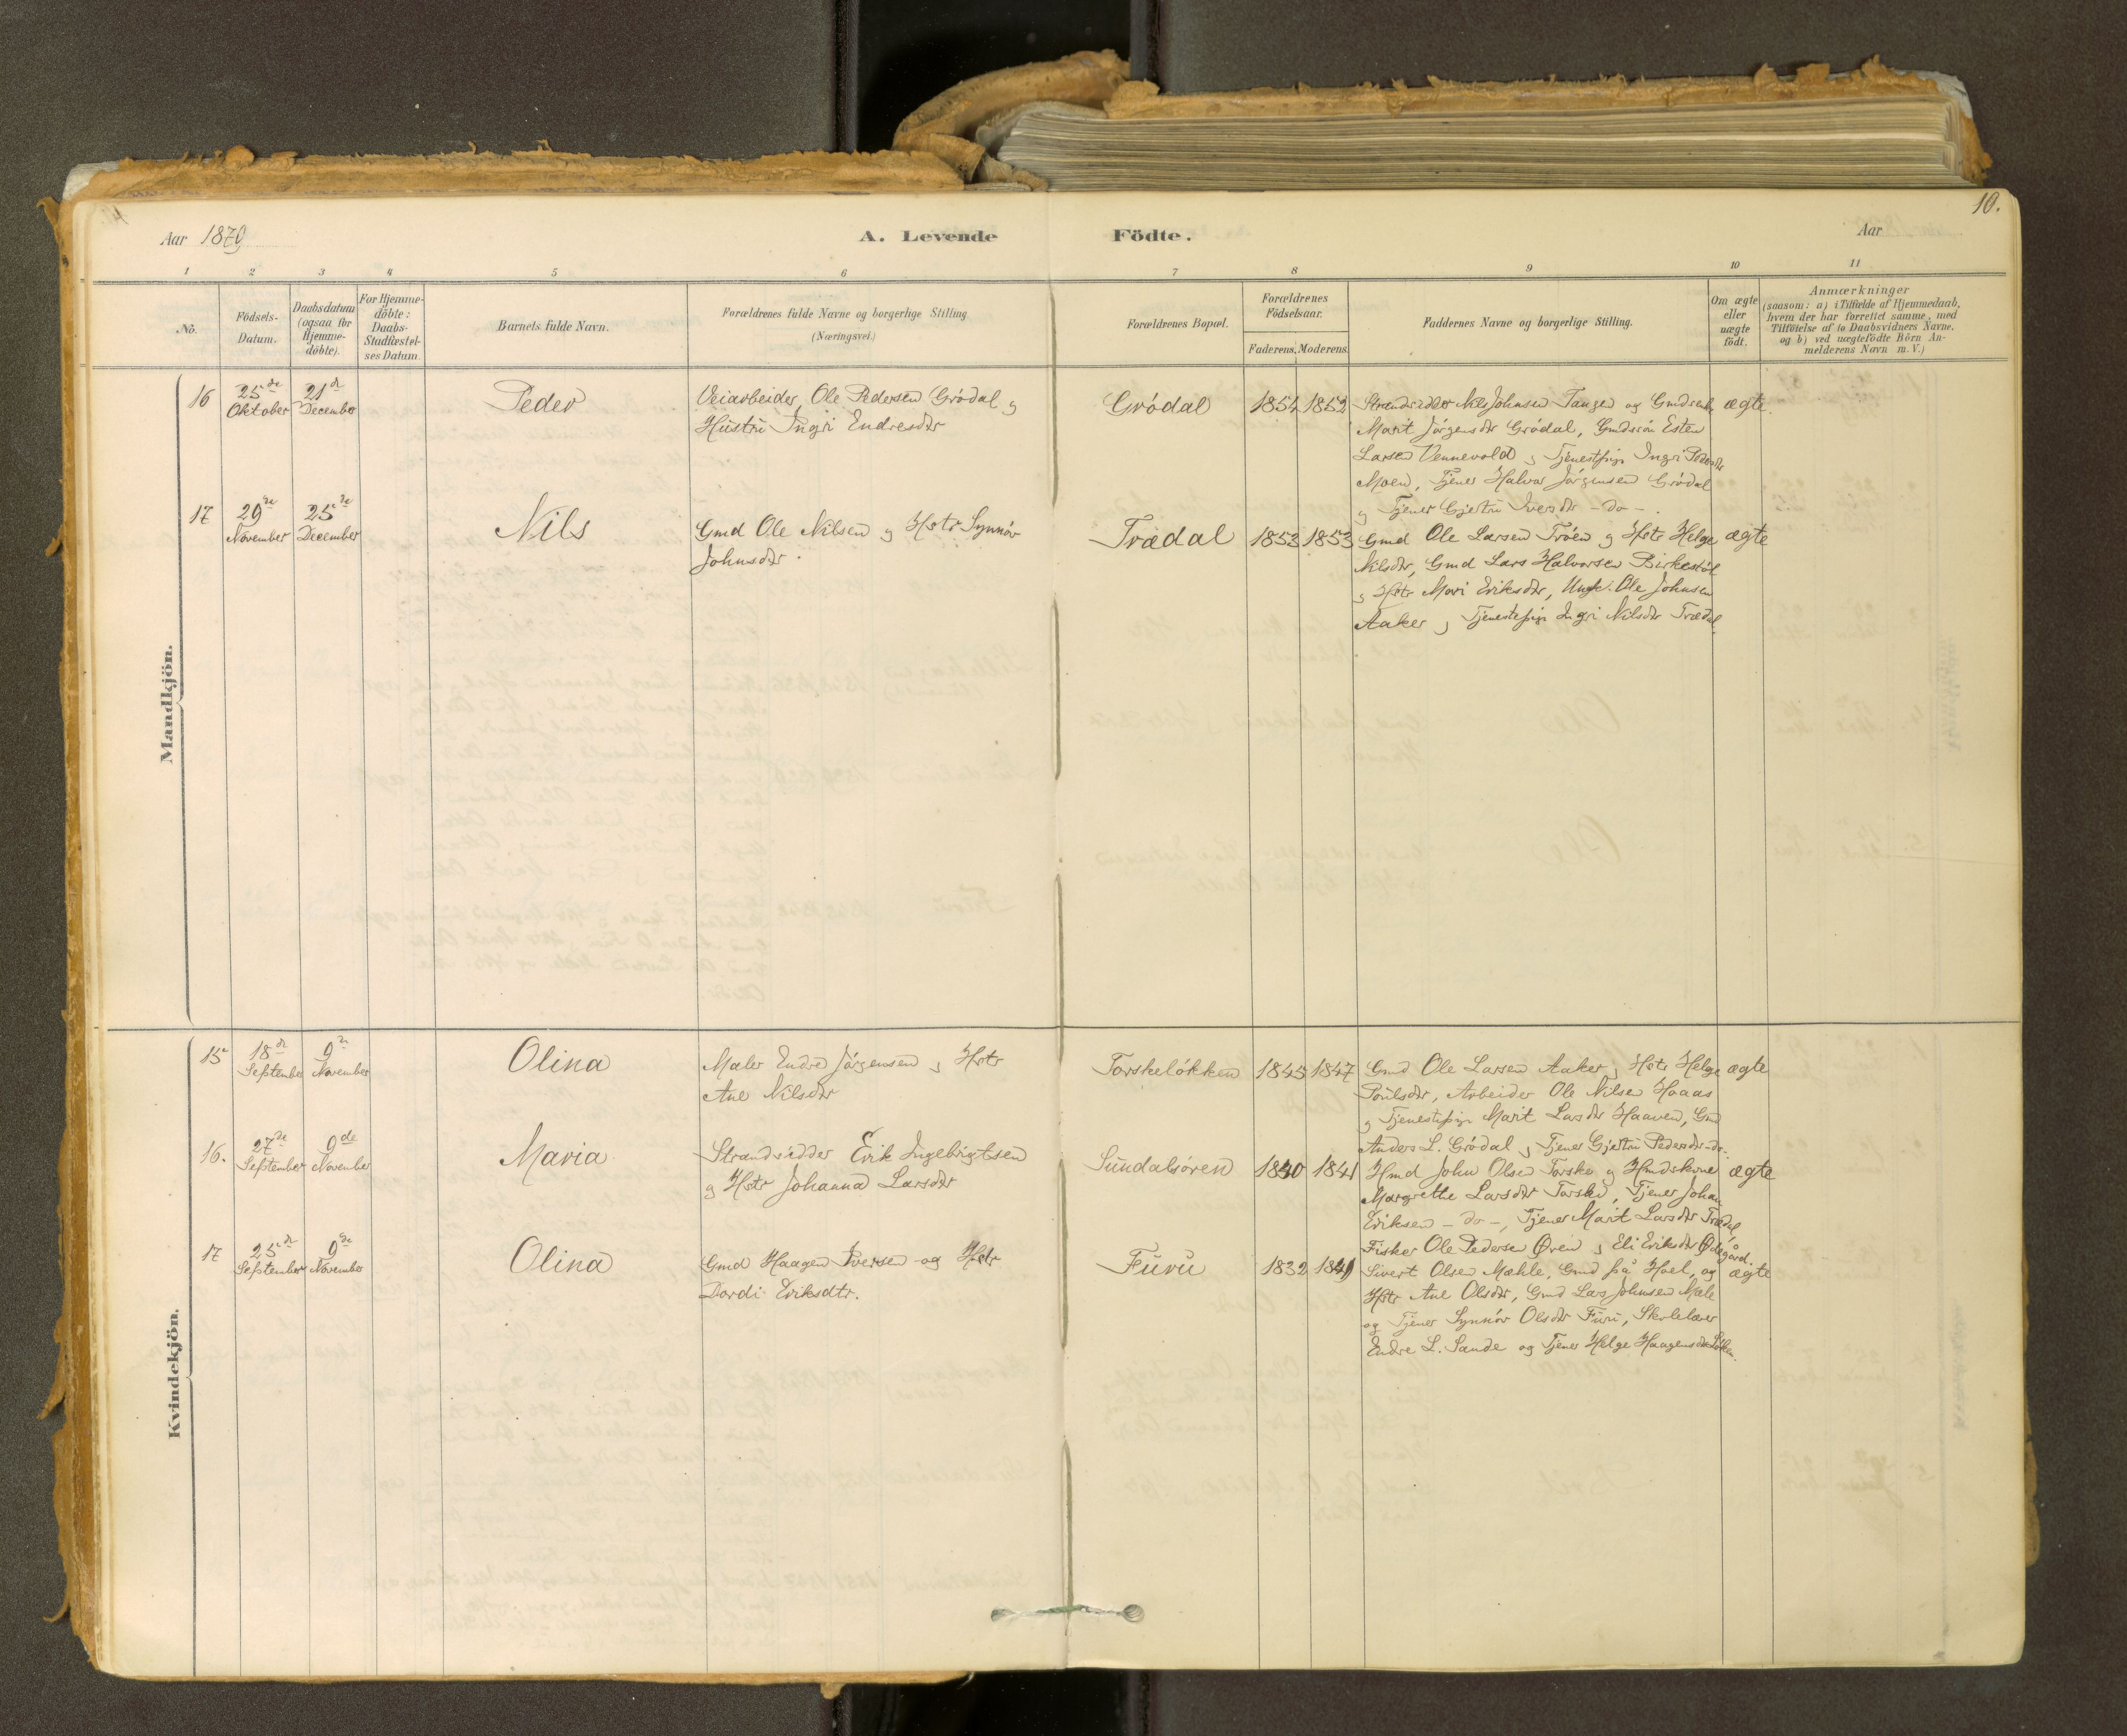 10.
Aar 1879
A. Levende Födte.
Aar
1 2 3 4 5 6 7 8 9 10 11
No.
Födsels-
Datum.
Daabsdatum
(ogsaa for
Hjemme-
döbte).
For Hjemme-
döbte:
Daabs-
Stadfæstel-
ses Datum.
Barnets fulde Navn.
Forældrenes fulde Navne og borgerlige Stilling
(Næringsvei.)
Forældrenes Bopæl.
Forældrenes
Födselsaar.
Faderens. Moderens.
Faddernes Navne og borgerlige Stilling.
Om ægte
eller
uægte
födt.
Anmærkninger
(saasom: a) i Tilfælde af Hjemmedaab,
hvem der har forrettet samme, med
Tilföielse af to Daabsvidners Navne.
og b) ved uægtefödte Börn An-
melderens Navn m. V.)
Mandkjön.
16
25de
Oktober
21de
December
Peder
Veiarbeider Ole Pedersen Grödal og
Hustru Ingri Endresdtr
Grödal
1854 1852
Strandsidder Nils Johnsen Tangen og Gmdsenk.
Marit Jörgensdtr Grödal, Gmdssön Esten
Larsen Vennevold og Tjenestpige Ingri Pedersdtr
Moen, Tjener Halvor Jörgensen Grödal
og Tjener Gjertru Iversdtr -do-.
ægte.
17
29de
November
25de
December
Nils
Gmd Ole Nilsen og Hstr Synnöv
Johnsdtr.
Trædal
1853 1853
Gmd Ole Larsen Tröen og Hstr Helga
Nilsdtr, Gmd Lars Halvorsen Birkestöl
og Hstr Mari Eriksdtr, Ungk. Ole Johnsen
Aaker og Tjenestepige Ingri Nilsdtr Trædal.
ægte
Kvindekjön.
15
18de
September
9de
November
Olina
Maler Endre Jörgensen og Hstr
Ane Nilsdtr
Torskelökken
1845 1847
Gmd Ole Larsen Aaker og Hstr Helga
Poulsdtr, Arbeider Ole Nilsen Hoaas
og Tjenestepige Marit Larsdtr Haaven, Gmd
Anders L. Grödal og Tjener Gjertru Pedersdtr -do-.
ægte
16.
27de
September
9de
November
Maria
Strandsidder Erik Ingebrigtsen
og Hstr Johanna Larsdtr
Sundalsören
1840 1841
Hmd John Olsen Torske og Hmdskone
Margrethe Larsdtr Torske, Tjener Johan
Eriksen -do-, Tjener Marit Larsdtr Trædal,
Fisker Ole Pedersen Øren og Eli Eriksdtr Ødegård.
ægte
17
25de
September
9de
November
Olina
Gmd Haagen Iversen og Hstr
Dordi Eriksdtr.
Furu
1832 1841
Sivert Olsen Mæhle, Gmd på Hoel, og
Hstr Ane Olsdtr, Gmd Lars Johnsen Mæle
og Tjener Synnöv Olsdtr Furu, Skolelærer
Endre L. Sande og Tjener Helge Haagensdtr Löken.
ægte